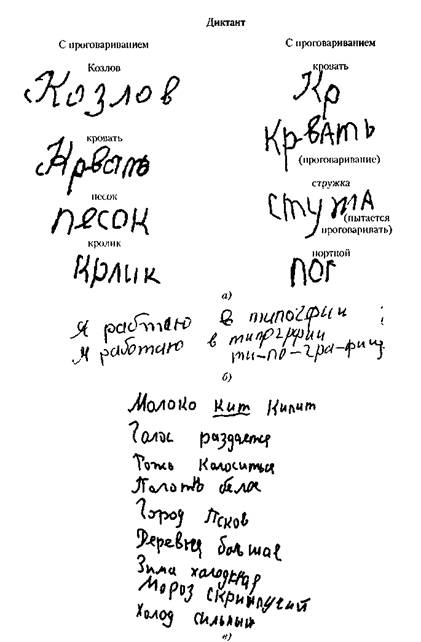 Диктант
С проговариванием
Козлов
Козлов
кровать
Крвать
песок
песок
кролик
Крлик
С проговариванием
кровать
Кр
Крвать
(проговаривание)
стружка
стужа
(пытается
проговаривать)
портной
пог
а)
Я рабтаю в типогфии
Я работаю в типгрфии
ти-по-гра-фии
б)
Молоко Кит Кипит
Голос
Колоситься
белое
Город Псков
Деревня
Зима холодная
Мороз
Холод сильный
в)